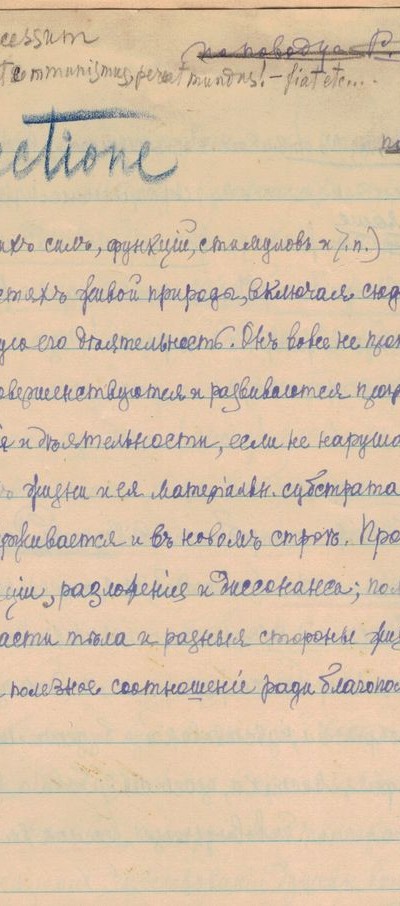 cessum
по поводу
communismus, pereat mundus! – fiat etc...
ectione
ихъ силъ, функцій, стимуловъ и т.п.)
стяхъ живой природы, включая сюда
его дѣятельность. Онъ вовсе не
овершенствуются и развиваются
я и дѣятельности, если не наруша
жизни и ея матеріальн. субстрата
рживается и въ новомъ строѣ. Про
ціи, разложенія и диссонанса; пол
асти тѣла и разныя стороны жиз
полезное соотношеніе ради благопол